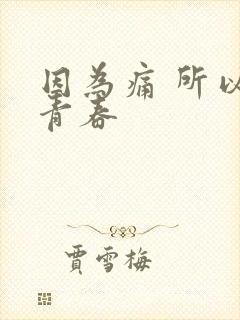 因為痛 所以
青春
賈雪梅